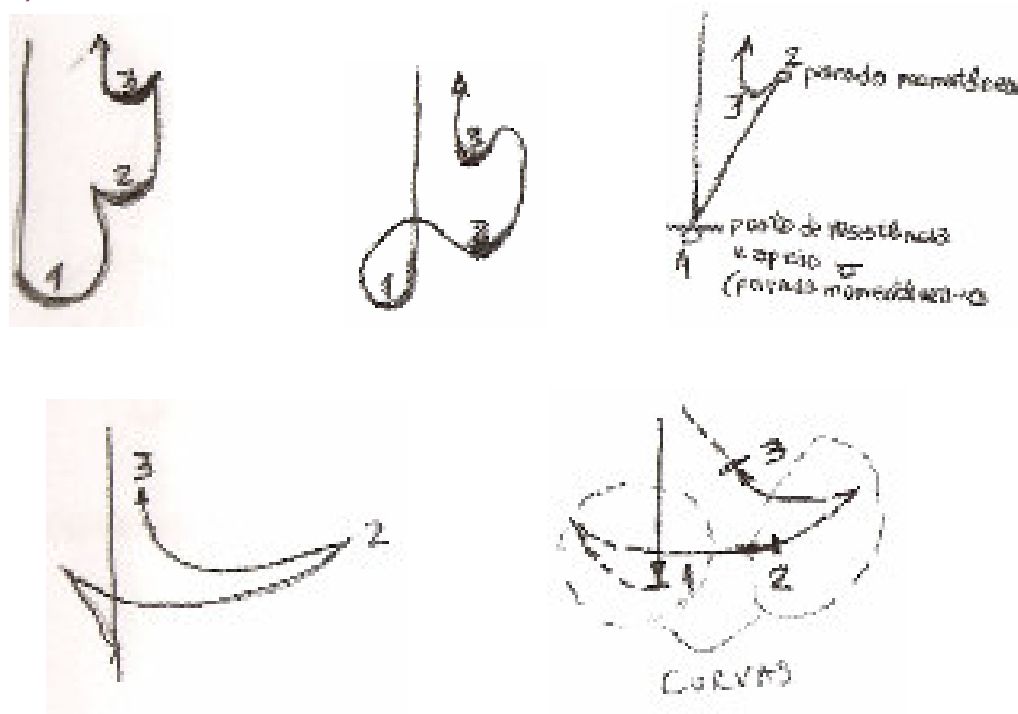 3
2
1
3
2
1
2 parada momentánea
3
1 punto de resistencia
(parada momentánea
3
2
3
1
2
CURVAS